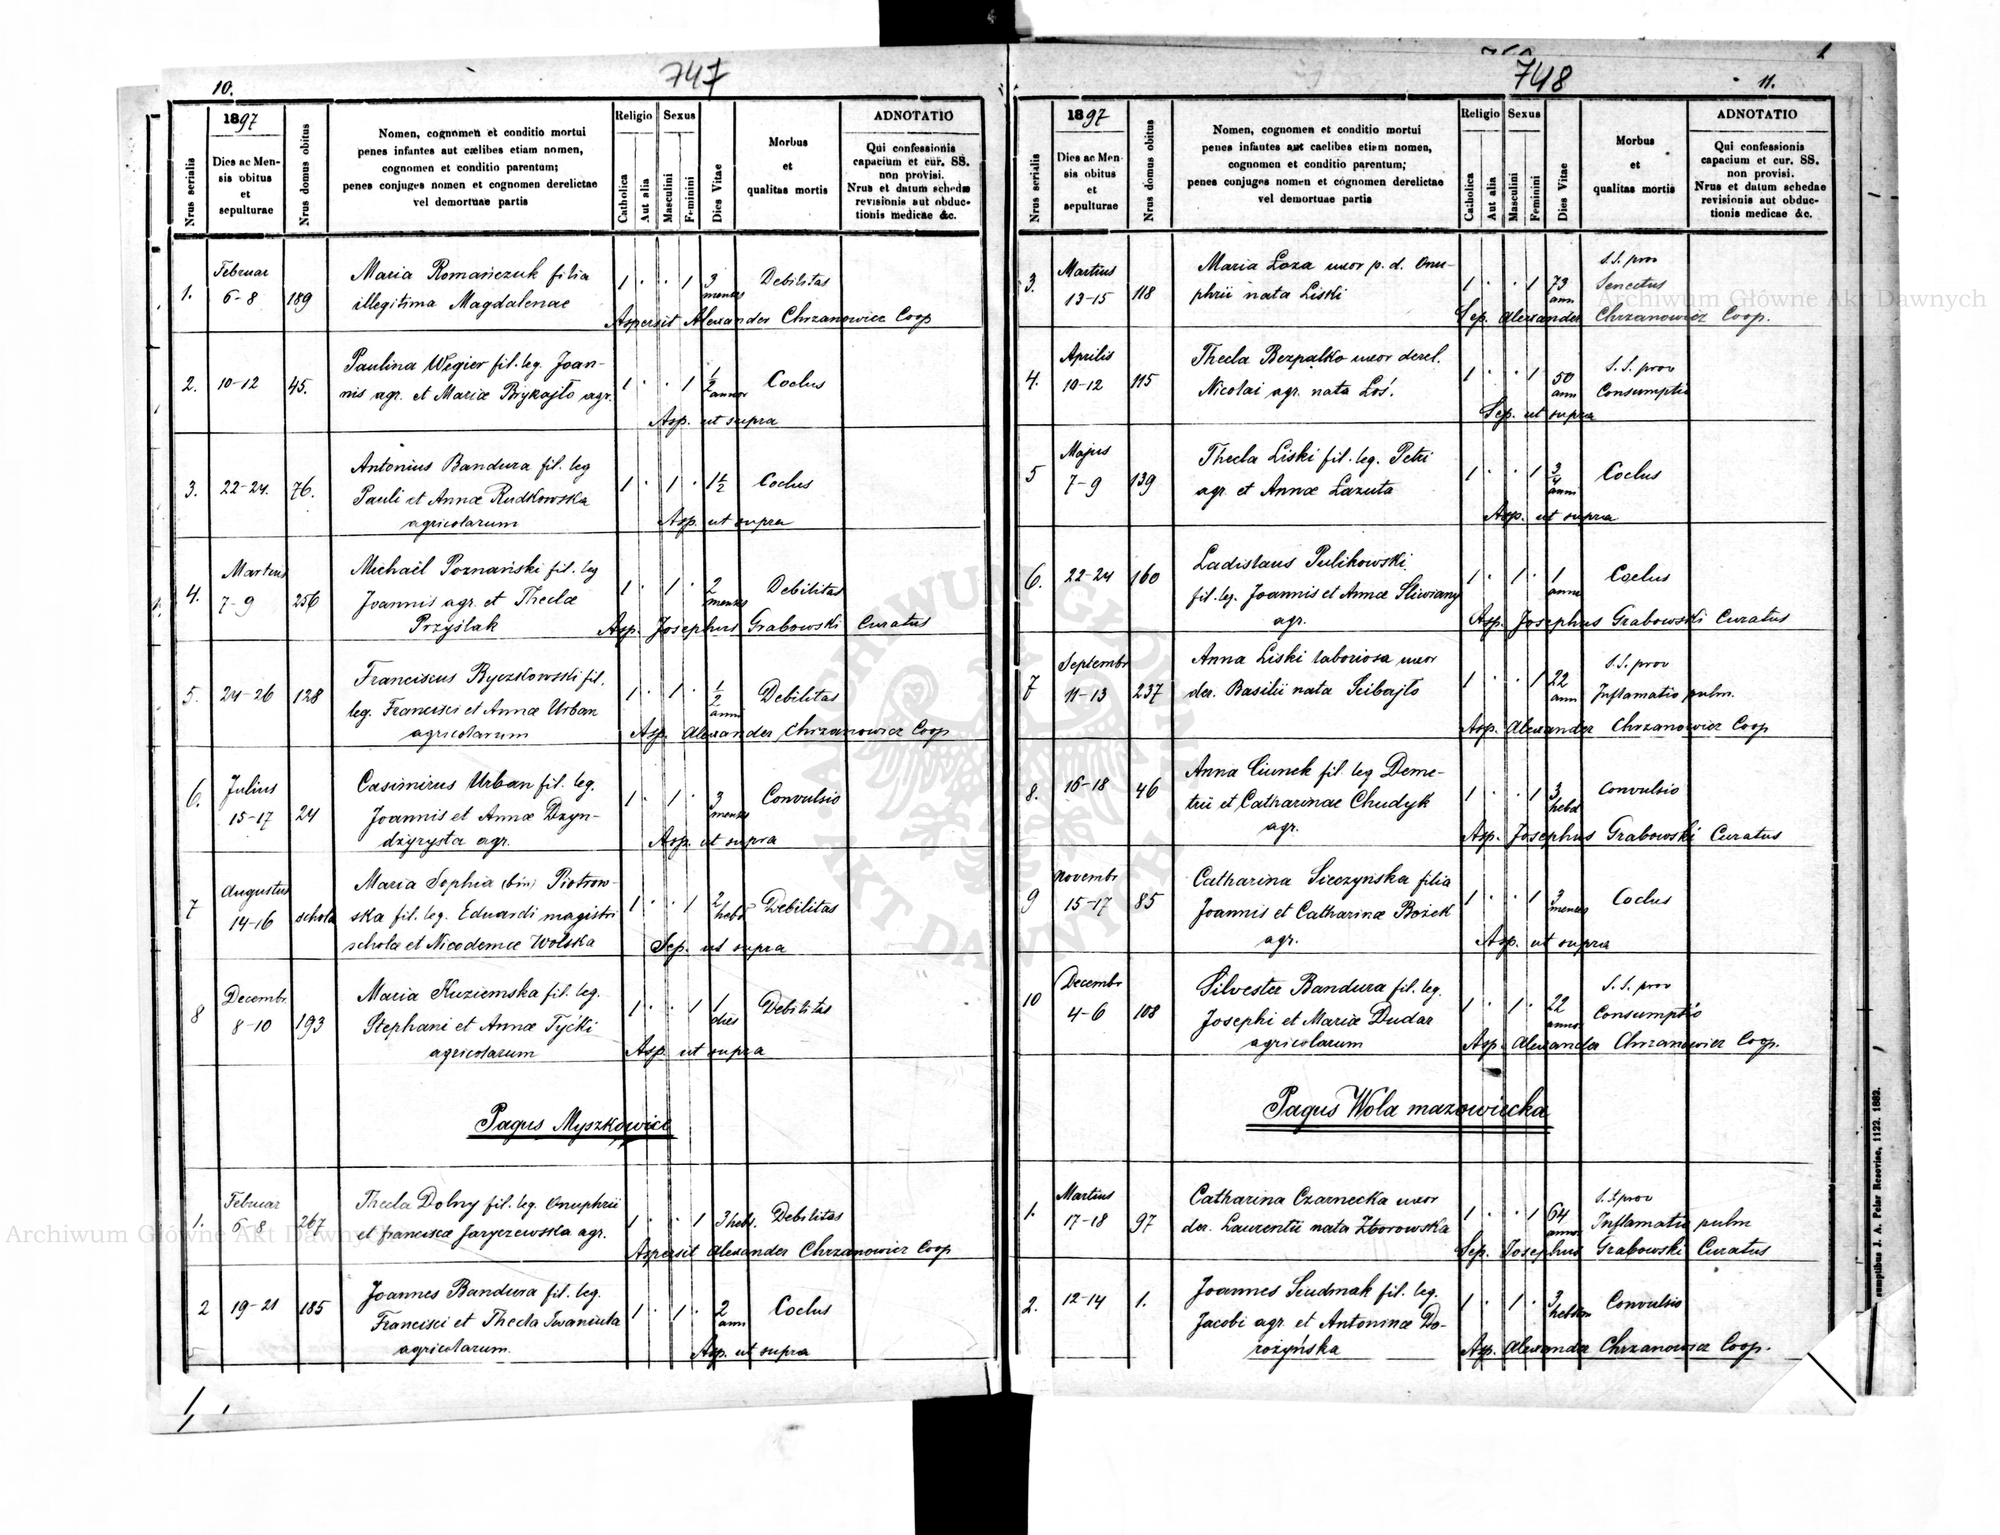 10.
747
1897
Nrus serialis
Dies ac Men-
sis obitus
et
sepulturae
Nrus domus obitus
Nomen, cognomen et conditio mortui
penes infantes aut cælibes etiam nomen,
cognomen et conditio parentum;
penes conjuges nomen et cognomen derelictae
vel demortuae partis
Religio
Catholica
Aut alia
Sexus
Masculini
Feminini
Dies Vitae
Morbus
et
qualitas mortis
ADNOTATIO
Qui confessionis
capacium et cur. SS.
non provisi.
Nrus et datum schedæ
revisionis aut obduc-
tionis medicae &c.
1. Februar 6-8 189 Maria Romańczuk filia 1 . . 1 3 menses Debilitas
illegitima Magdalenae
Aspersit Alexander Chrzanowicz Coop
2. 10-12 45. Paulina Węgier fil. leg. Joan- 1 . . 1 1/2 annor Coclus
nis agr. et Mariæ Brykajło agr.
Asp. ut supra
3. 22-24. 76. Antonius Bandura fil. leg 1 . 1 . 1 1/2 Coclus
Pauli et Annæ Rudkowska
agricolarum
Asp. ut supra
4. Martius 7-9 256 Michaël Poznański fil. leg 1 . 1 . 2 menses Debilitas
Joannis agr. et Theclæ
Przyślak
Asp. Josephus Grabowski Curatus
5. 24-26 128 Franciscus Byczkowski fil. 1 . 1 . 1/2 anni Debilitas
leg. Francisci et Annæ Urban
agricolarum
Asp. Alexander Chrzanowicz Coop
6. Julius 15-17 24 Casimirus Urban fil. leg. 1 . 1 . 3 menses Convulsio
Joannis et Annæ Dzyn-
dżyrysta agr.
Asp. ut supra
7 Augustus 14-16 schola Maria Sophia (bin) Piotrow- 1 . . 1 2 hebd Debilitas
ska fil. leg. Eduardi magistri
scholæ et Nicodemæ Wolska
Sep. ut supra
8 Decembr. 8-10 193 Maria Kuziemska fil. leg. 1 . . 1 1 dies Debilitas
Stephani et Annæ Tyćki
agricolarum
Asp ut supra
Pagus Myszkowice
1. Februar 6-8 267 Thecla Dolny fil. leg. Onuphrii 1 . . 1 3 hebd. Debilitas
et Francisca Jaryczewska agr.
Aspersit Alexander Chrzanowicz Coop
2 19-21 185 Joannes Bandura fil. leg. 1 . 1 . 2 ann Coclus
Francisci et Thecla Iwaniuta
agricolarum.
Asp. ut supra
748
11.
1897
Nrus serialis
Dies ac Men-
sis obitus
et
sepulturae
Nrus domus obitus
Nomen, cognomen et conditio mortui
penes infantes aut caelibes etiam nomen,
cognomen et conditio parentum;
penes conjuges nomen et cognomen derelictae
vel demortuae partis
Religio
Catholica
Aut alia
Sexus
Masculini
Feminini
Dies Vitae
Morbus
et
qualitas mortis
ADNOTATIO
Qui confessionis
capacium et cur. SS.
non provisi.
Nrus et datum schedae
revisionis aut obduc-
tionis medicae &c.
3. Martius 13-15 118 Maria Loza uxor p. d. Onu- 1 . . 1 73 ann S.S. prov Senectus
phrii nata Liski
Sep. Alexander Chrzanowicz Coop.
4. Aprilis 10-12 115 Thecla Bezpalko uxor derel. 1 . . 1 50 ann S.S. prov Consumptio
Nicolai agr. nata Łoś.
Sep. ut supra
5 Majus 7-9 139 Thecla Liski fil. leg. Petri 1 . . 1 3/4 anni Coclus
agr. et Annæ Łazuta
Asp. ut supra
6. 22-24 160 Ladislaus Pulikowski 1 . 1 . 1 anni Coclus
fil. leg. Joannis et Annæ Sliwiany
agr.
Asp. Josephus Grabowski Curatus
7 Septembr 11-13 237 Anna Liski laboriosa uxor 1 . . 1 22 ann S.S. prov Inflamatio pulm.
der. Basilii nata Scibajło
Asp. Alexander Chrzanowicz Coop
8. 16-18 46 Anna Ciunek fil. leg Deme- 1 . . 1 3 hebd Convulsio
trii et Catharinae Chudyk
agr.
Asp. Josephus Grabowski Curatus
9 Novembr 15-17 85 Catharina Sieczyńska filia 1 . . 1 3 menses Coclus
Joannis et Catharinæ Bożek
agr.
Asp. ut supra
10 Decembr 4-6 108 Silvester Bandura fil. leg. 1 . 1 . 22 annor S.S. prov Consumptio
Josephi et Mariæ Dudar
agricolarum
Asp. Alexander Chrzanowicz Coop.
Pagus Wola mazowiecka
1. Martius 17-18 97 Catharina Czarnecka uxor 1 . . 1 64 annor S.S prov Inflamatio pulm
der. Laurentii nata Zborowska
Sep. Josephus Grabowski Curatus
2. 12-14 1. Joannes Sciudmak fil. leg. 1 . 1 . 3 hebdom Convulsio
Jacobi agr. et Antoninæ Do-
rożyńska
Asp. Alexander Chrzanowicz Coop.
sumptibus J. A. Pelar Resoviae, 1122. 1882.
Archiwum Główne Akt Dawnych
Archiwum Główne Akt Dawnych
ARCHIWUM GŁÓWNE AKT DAWNYCH